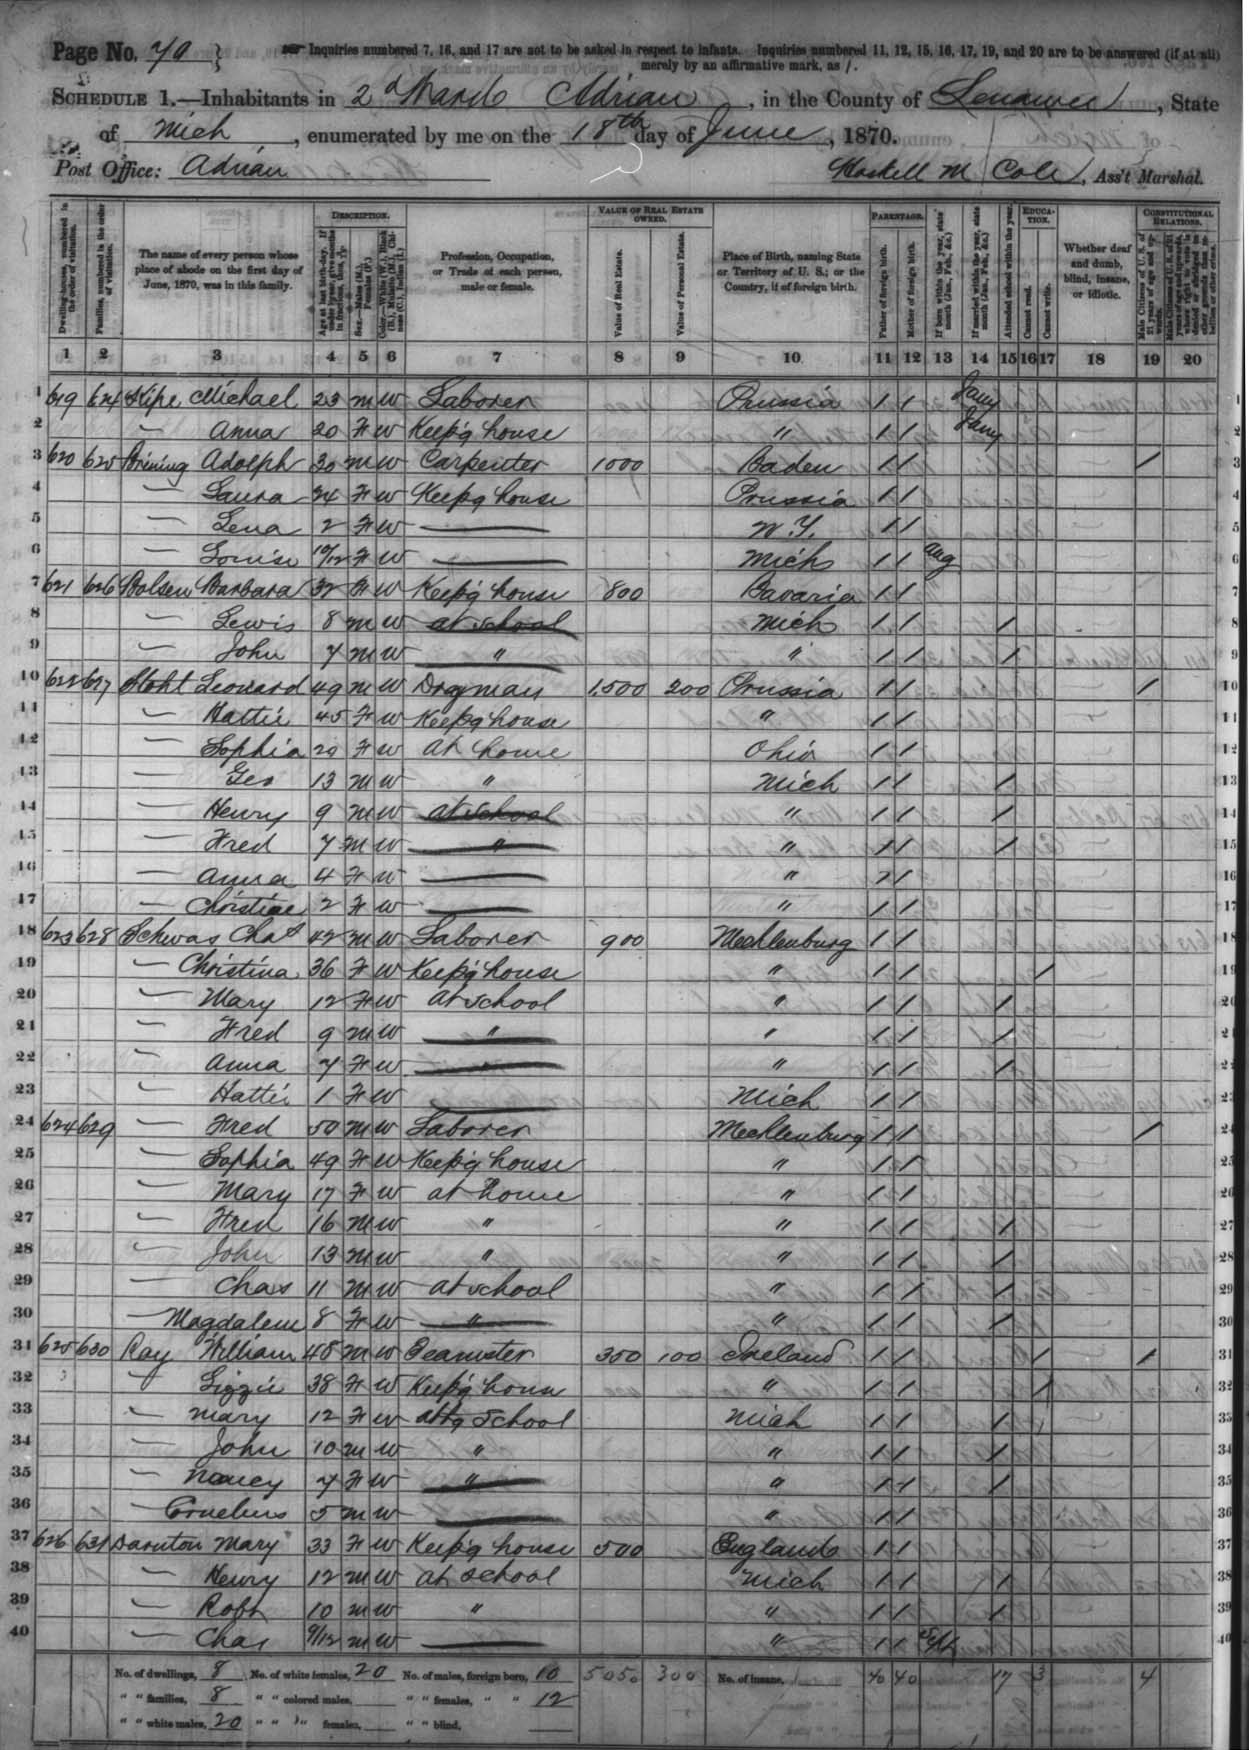 Page No. 70
Inquiries numbered 7, 16, and 17 are not to be asked in respect to infants. Inquiries numbered 11, 12, 15, 16, 17, 19, and 20 are to be answered (if at all)
merely by an affirmative mark, as /.
SCHEDULE 1.—Inhabitants in 2d Ward Adrian, in the County of Lenawee, State
of Mich, enumerated by me on the 18th day of June, 1870.
Post Office: Adrian
Haskell M Cole, Ass't Marshal.
Dwelling-houses, numbered in the order of visitation.
Families, numbered in the order of visitation.
The name of every person whose place of abode on the first day of June, 1870, was in this family.
DESCRIPTION.
Profession, Occupation, or Trade of each person, male or female.
VALUE OF REAL ESTATE OWNED.
Value of Real Estate.
Value of Personal Estate.
Place of Birth, naming State or Territory of U. S.; or the Country, if of foreign birth.
PARENTAGE.
Father of foreign birth.
Mother of foreign birth.
If born within the year, state month (Jan., Feb., &c.)
If married within the year, state month (Jan., Feb., &c.)
Attended school within the year.
EDUCATION.
Cannot read.
Cannot write.
Whether deaf and dumb, blind, insane, or idiotic.
CONSTITUTIONAL RELATIONS.
1 2 3 4 5 6 7 8 9 10 11 12 13 14 15 16 17 18 19 20
1 619 624 Michael 23 M W Laborer Prussia / / Jany 1
2 — Anna 20 F W Keep'g house " / / Jany 2
3 620 625 Adolph 30 M W Carpenter 1000 Baden / / / 3
4 — Laura 24 F W Keep'g house Prussia / / 4
5 — Lena 2 F W — N.Y. / / 5
6 — Louise 10/12 F W — Mich / / Aug 6
7 621 626 Bolsen Barbara 32 F W Keep'g house 800 Bavaria / / 7
8 — Lewis 8 M W at school Mich / / / 8
9 — John 7 M W " " / / / 9
10 622 627 Leonard 49 M W Drayman 1,500 200 Prussia / / / 10
11 — Hattie 45 F W Keep'g house " / / 11
12 — Sophia 20 F W at home Ohio / / 12
13 — Geo 13 M W " Mich / / / 13
14 — Henry 9 M W at school " / / / 14
15 — Fred 7 M W " " / / / 15
16 — Anna 4 F W — " / / 16
17 — Christine 2 F W — " / / 17
18 623 628 Schwas Chas 42 M W Laborer 900 Mecklenburg / / 18
19 — Christina 36 F W Keep'g house " / / / 19
20 — Mary 12 F W at school " / / / 20
21 — Fred 9 M W " " / / / 21
22 — Anna 7 F W — " / / / 22
23 — Hattie 1 F W — Mich / / 23
24 624 629 — Fred 50 M W Laborer Mecklenburg / / / 24
25 — Sophia 49 F W Keep'g house " / / 25
26 — Mary 17 F W at home " / / 26
27 — Fred 16 M W " " / / / 27
28 — John 13 M W " " / / / 28
29 — Chas 11 M W at school " / / / 29
30 — Magdalene 8 F W " " / / / 30
31 625 630 Ray William 48 M W Teamster 350 100 Ireland / / / / 31
32 — Lizzie 38 F W Keep'g house " / / / 32
33 — Mary 12 F W at school Mich / / / 33
34 — John 10 M W " " / / / 34
35 — Nancy 7 F W " " / / / 35
36 — Cornelius 5 M W — " / / 36
37 626 631 Darnton Mary 33 F W Keep'g house 500 England / / 37
38 — Henry 12 M W at school Mich / / / 38
39 — Robt 10 M W " " / / / 39
40 — Chas 9/12 M W — " / / 40
No. of dwellings, 8 No. of white females, 20 No. of males, foreign born, 10 5050 300 No. of insane, 40 40 17 3 4
" " families, 8 " " colored males, " " females, " " 12
" " white males, 20 " " " females, " " blind,